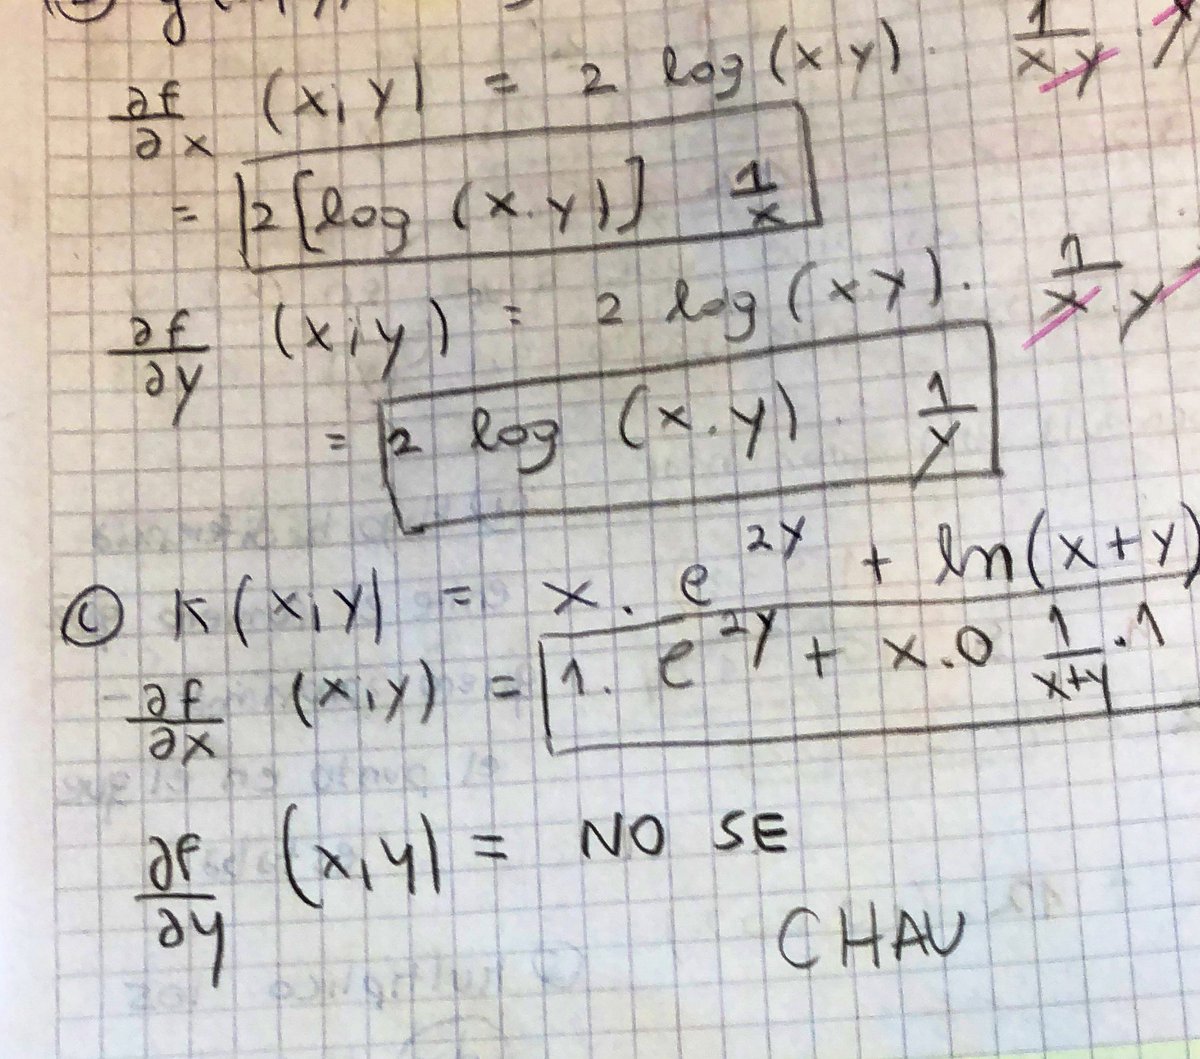 ∂f/∂x (x,y) = 2 log (x.y) . 1/x.y . y
= 2 [log (x.y)] 1/x
∂f/∂y (x,y) = 2 log (x.y). 1/x.y
= 2 log (x.y) . 1/y
c) K(x,y) = x. e^2y + ln(x+y)
∂f/∂x (x,y) = 1. e^2y + x.0 1/x+y .1
∂f/∂y (x,y) = NO SE
CHAU